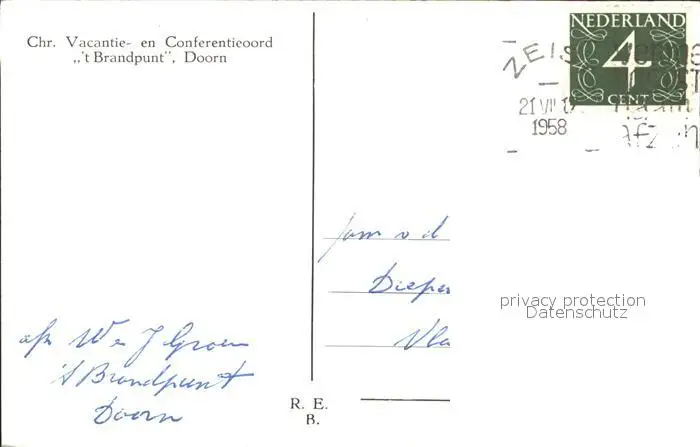 Chr. Vacantie- en Conferentieoord
„'t Brandpunt", Doorn
NEDERLAND
4
CENT
ZEIST
21 VII
1958
fam v d
Dieper
Vla
privacy protection
Datenschutz
afz W en J Groen
't Brandpunt
Doorn
R. E.
B.